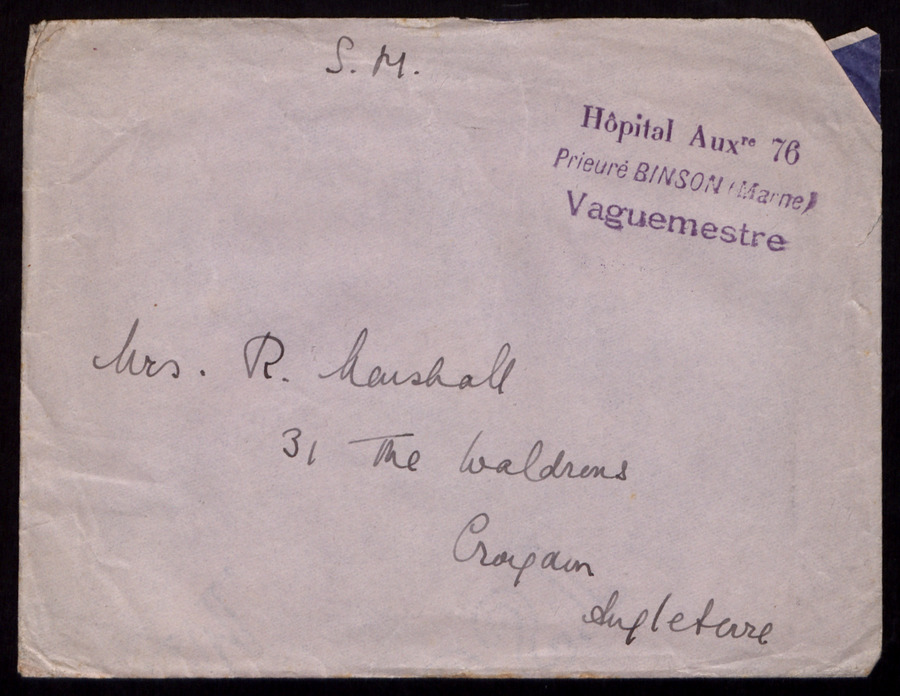 S. M.
Hôpital Auxʳᵉ 76
Prieuré BINSON (Marne)
Vaguemestre
Mrs. R. Marshall
31 The Waldrons
Croydon
Angleterre